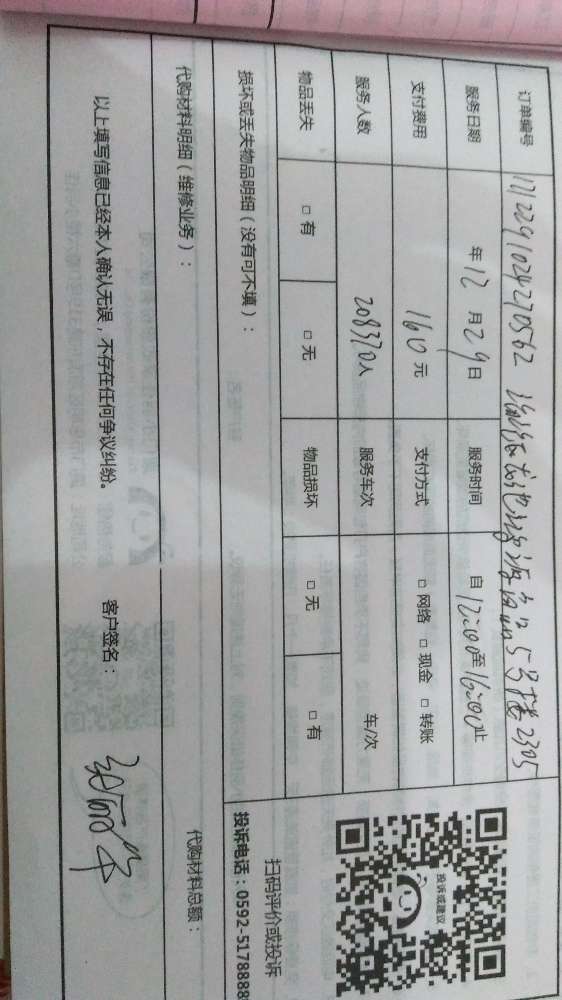 订单编号 1712291024270562 5号楼2305
服务日期 年12月29日 服务时间 自12:00至16:00止
支付费用 160元 支付方式 □网络 □现金 □转账
服务人数 208370人 服务车次 车/次
物品丢失 □有 □无 物品损坏 □无 □有
损坏或丢失物品明细（没有可不填）：
投诉或建议
扫码评价或投诉
投诉电话：0592-5178888
代购材料明细（维修业务）： 代购材料总额：
以上填写信息已经本人确认无误，不存在任何争议纠纷。 客户签名：